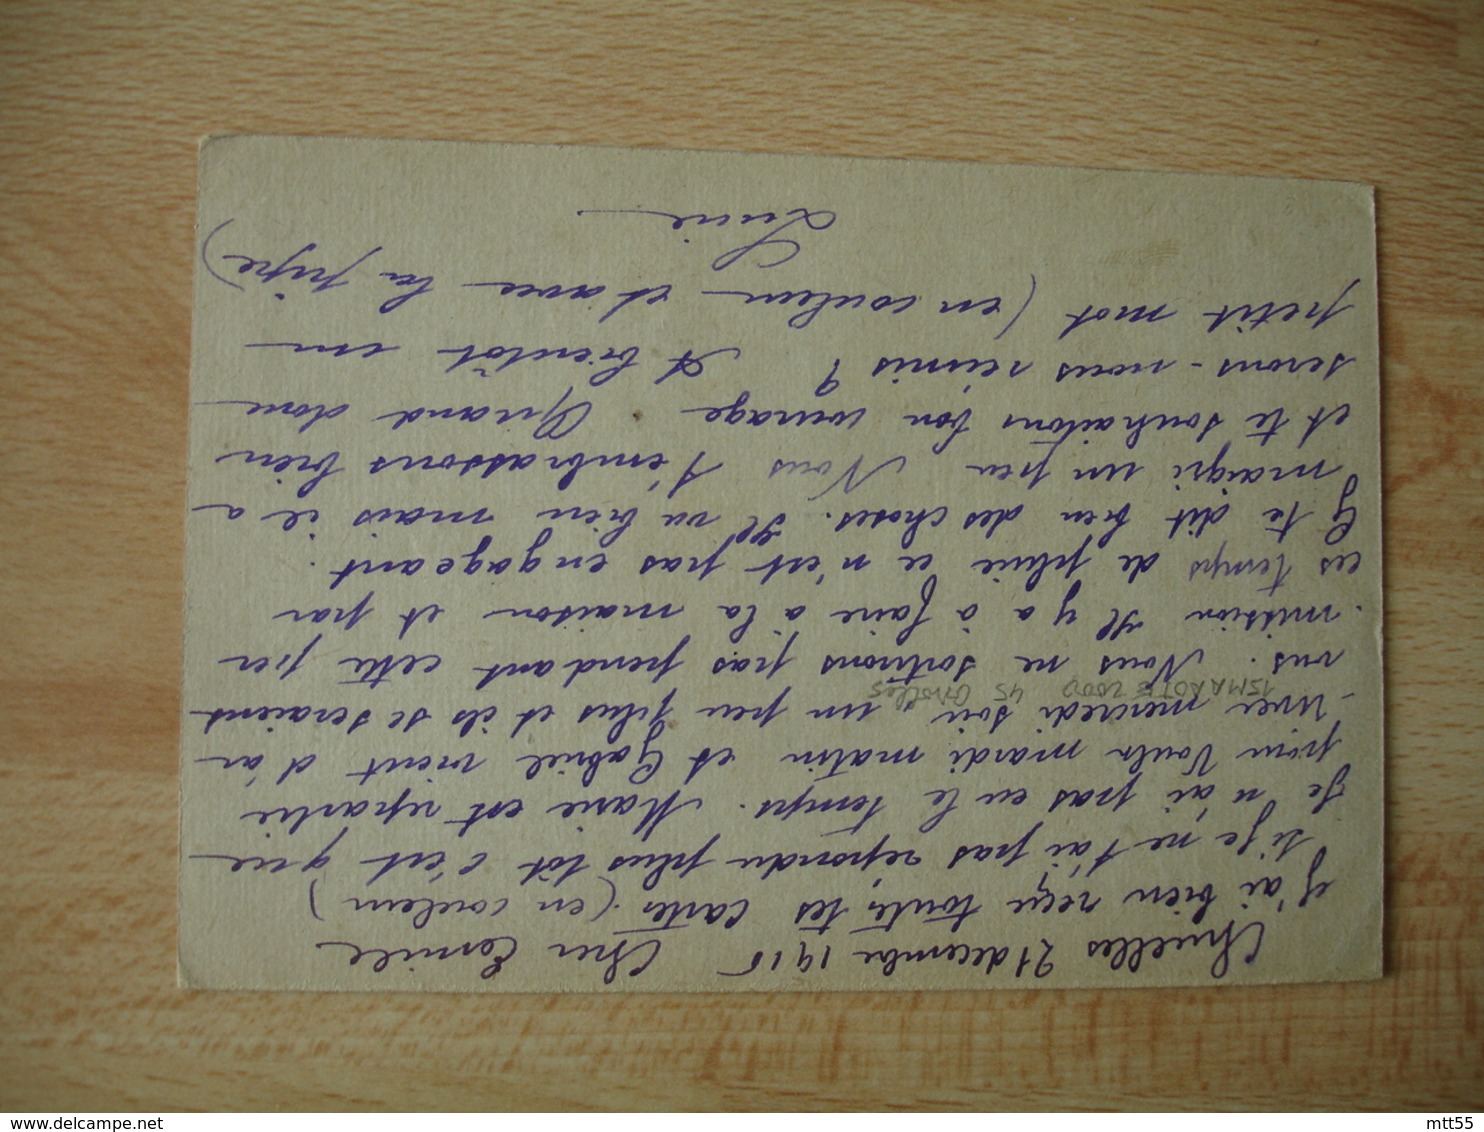 Chuelles 21 decembre 1915 Cher Camille
J'ai bien reçu toutes tes cartes. (en couleur)
si je ne t'ai pas repondu plus tôt c'est que
je n'ai pas eu le temps. Marie est repartie
pour mardi matin et Gabriel vient d'ar
river mercredi soir un peu plus et ils se seraient
vus. Nous ne sortirons pas pendant cette per
mission Il y a à faire à la maison et par
ces temps de pluie ce n'est pas engageant.
G te dit bien des choses. Il va bien mais il a
maigri un peu Nous t'embrassons bien
et te souhaitons bon courage. Quand donc
serons-nous réunis? A bientôt un
petit mot (en couleur et avec la pipe)
Lucie
15MAROTTE 2000 45
mtt55